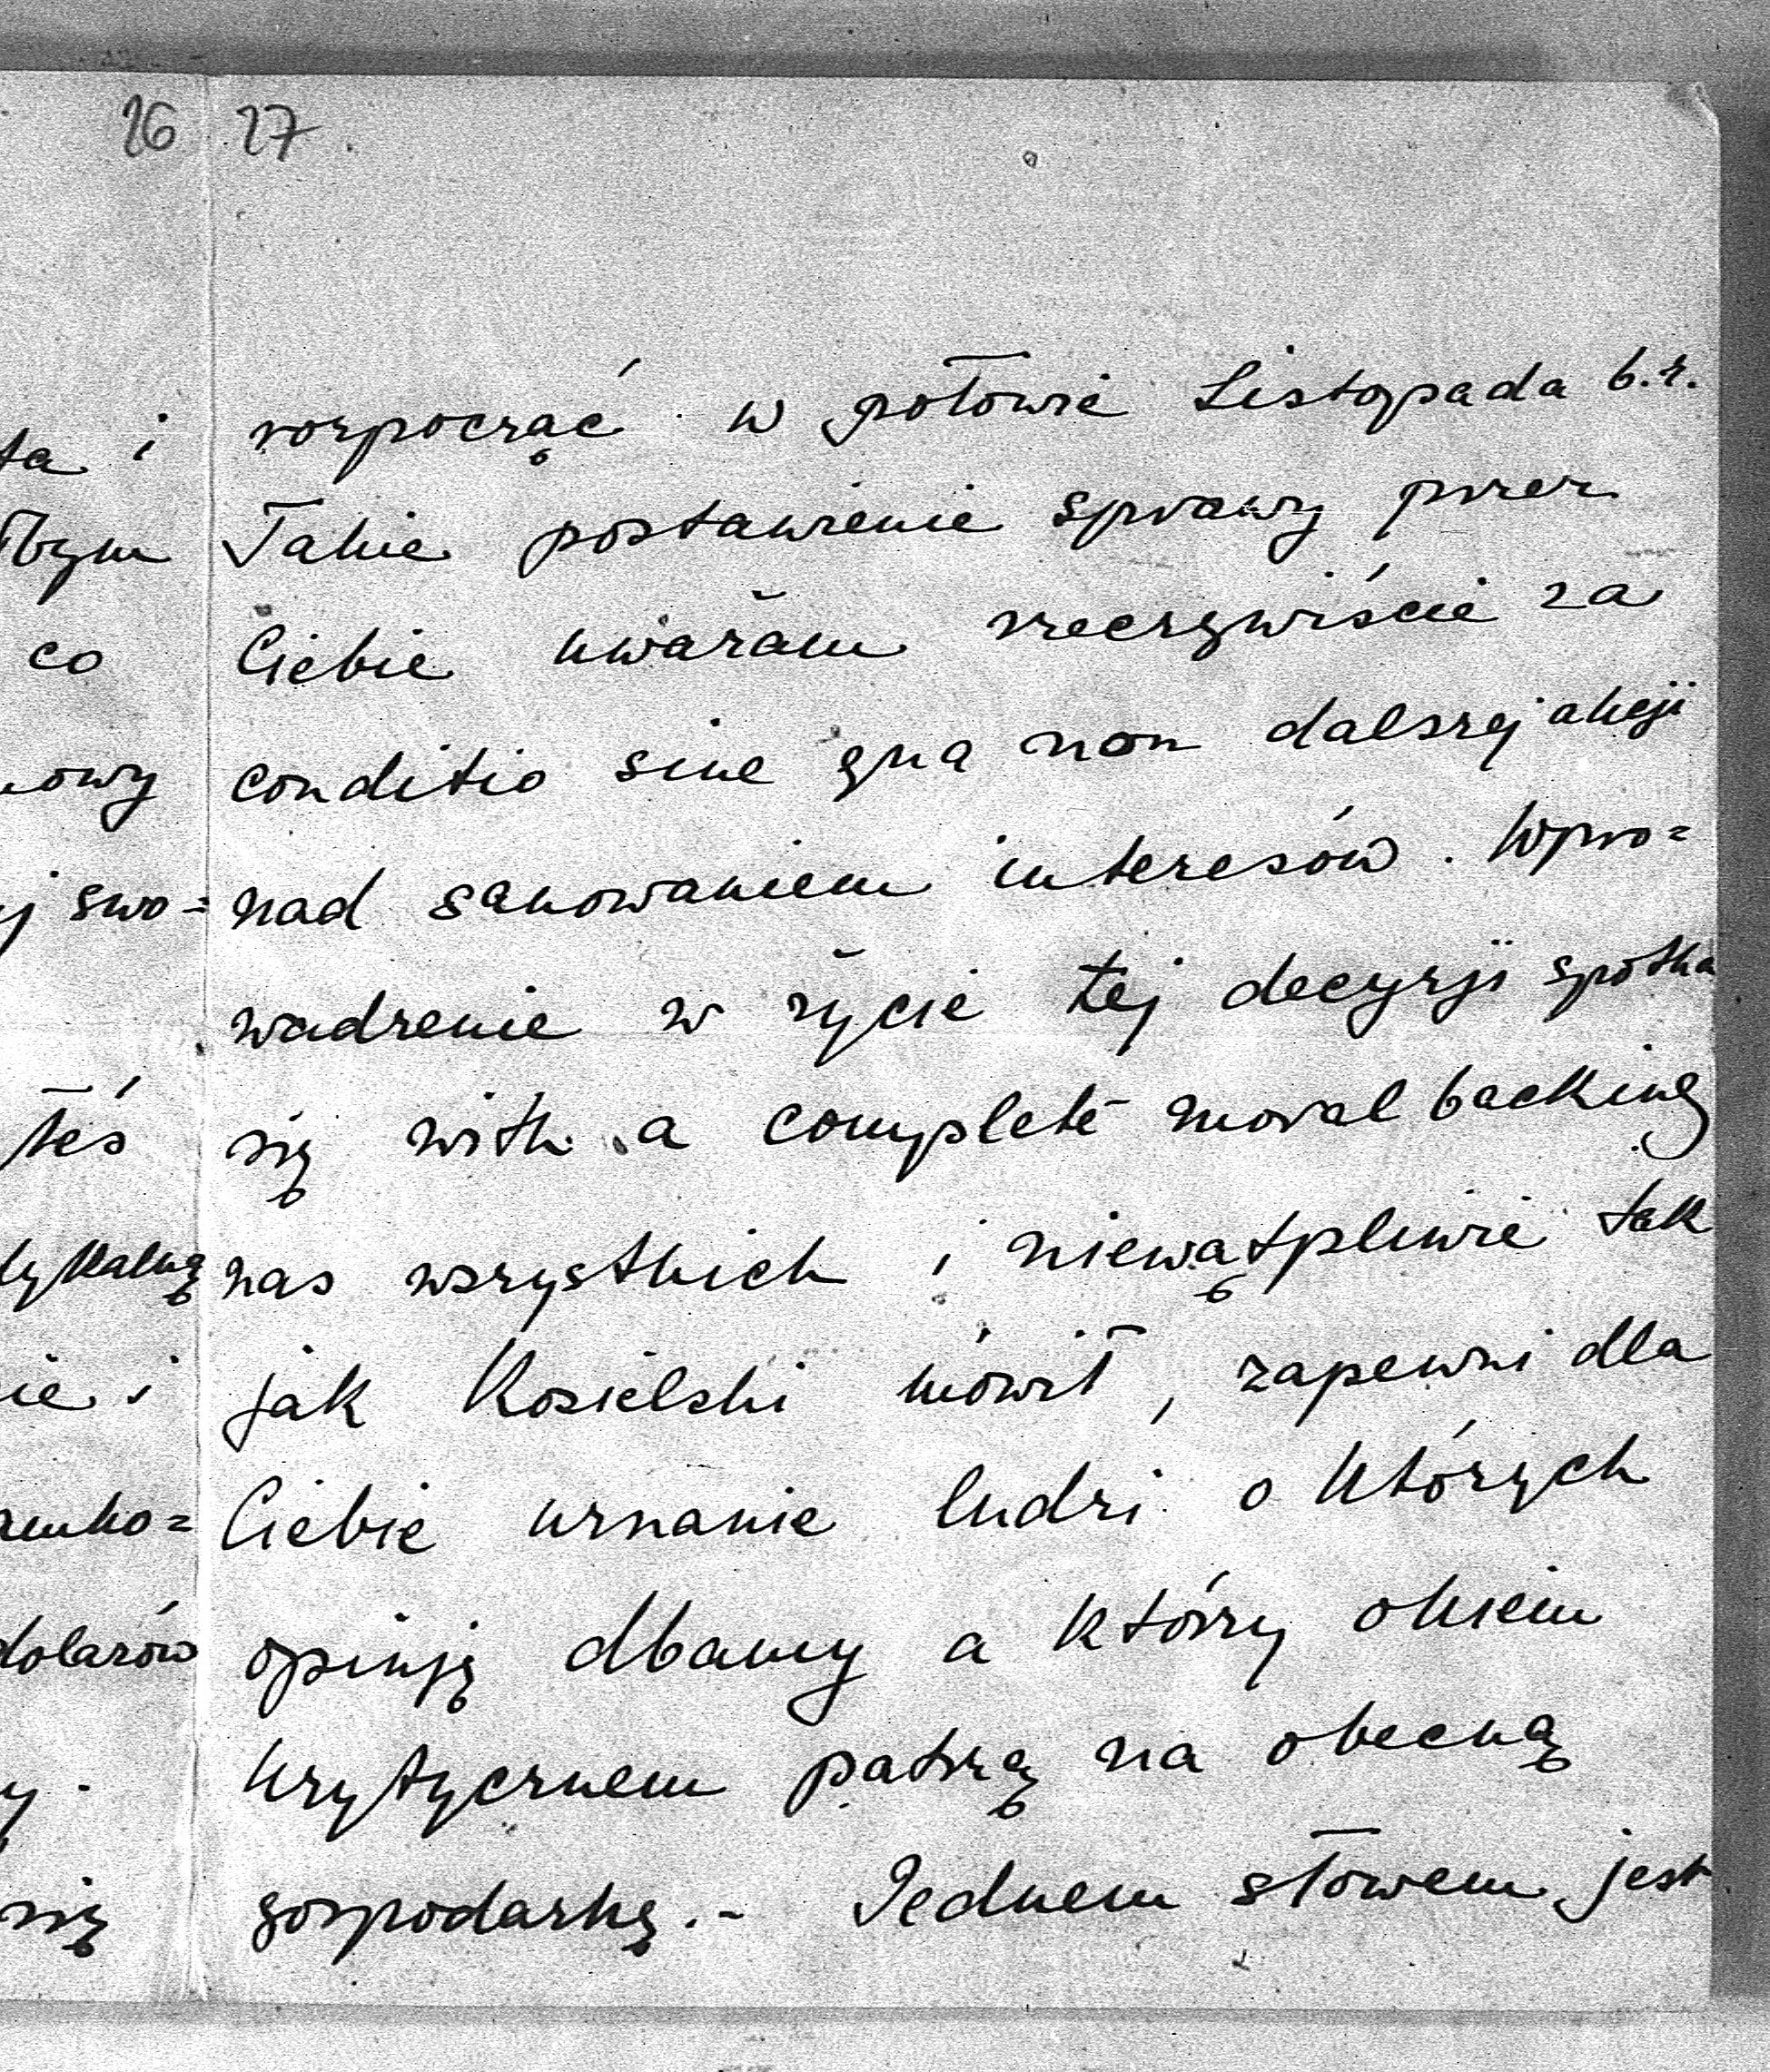 26 27.
ta i
rozpocząć w połowie Listopada b.r.
łbym
Takie postawienie sprawy przez
co
Ciebie uważam rzeczywiście za
nowy
conditio sine qua non dalszej akcji
j swo=
nad sanowaniem interesów. Wpro=
wadzenie w życie tej decyzji spotka
łeś
się with a complete moral backing
dykalną
nas wszystkich i niewątpliwie tak
ie i
jak Kosielski mówił, zapewni dla
Ciebie uznanie ludzi o których
dolarów
opinję dbamy a którzy okiem
y.
krytycznem patrzą na obecną
się
gospodarkę.- Jednem słowem jest